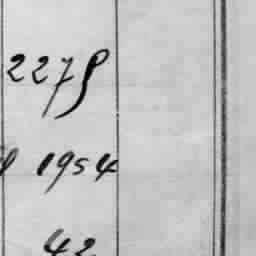 2278
1954
42